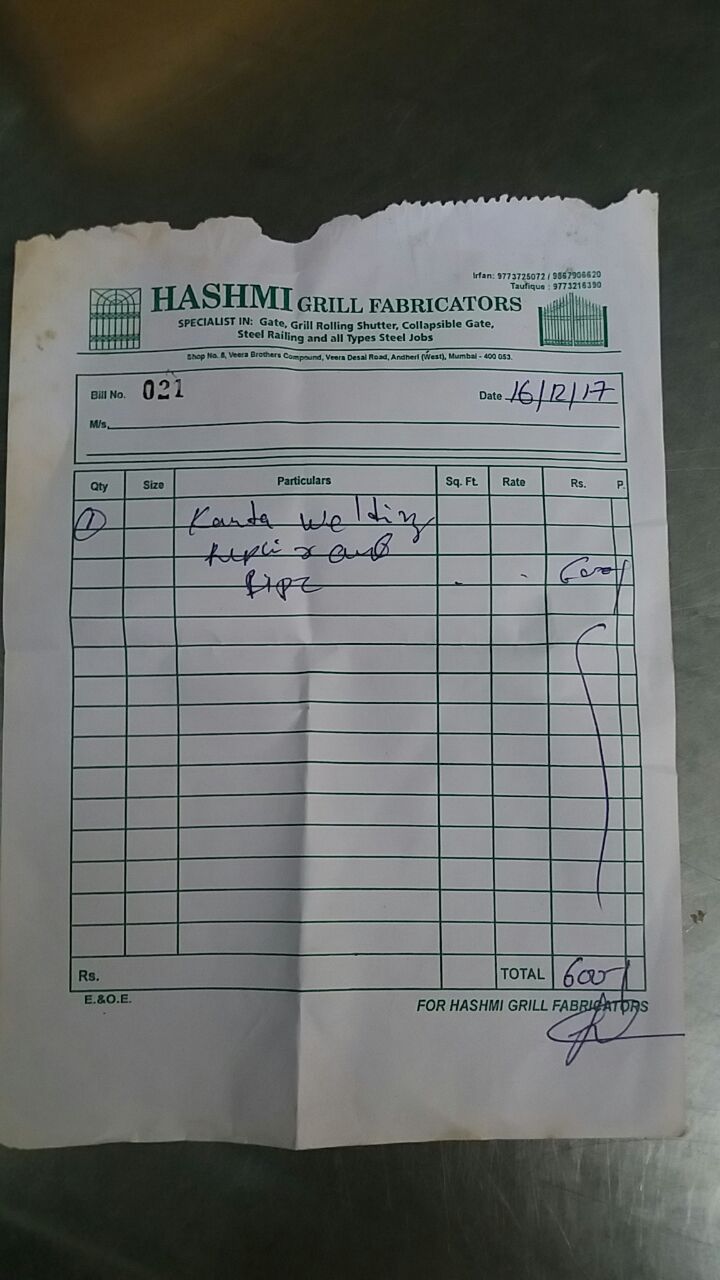 Irfan: 9773725072 / 9867906620
Taufique : 9773216390
HASHMI GRILL FABRICATORS
SPECIALIST IN: Gate, Grill Rolling Shutter, Collapsible Gate,
Steel Railing and all Types Steel Jobs
Shop No. 8, Veera Brothers Compound, Veera Desai Road, Andheri (West), Mumbai - 400 053.
Bill No. 021 Date 16/12/17
M/s.
Qty Size Particulars Sq. Ft. Rate Rs. P.
1 Kanta Welding
600/
Rs. TOTAL 600/
E.&O.E. FOR HASHMI GRILL FABRICATORS